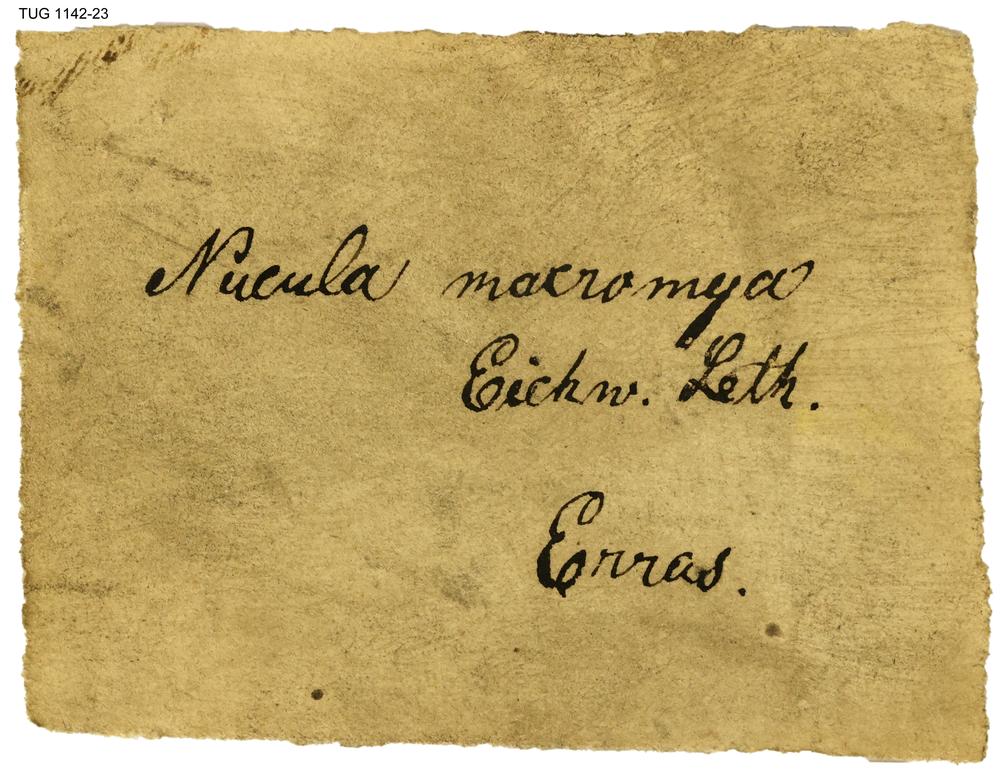 TUG 1142-23
Nucula macromya
Eichw. Leth.
Erras.